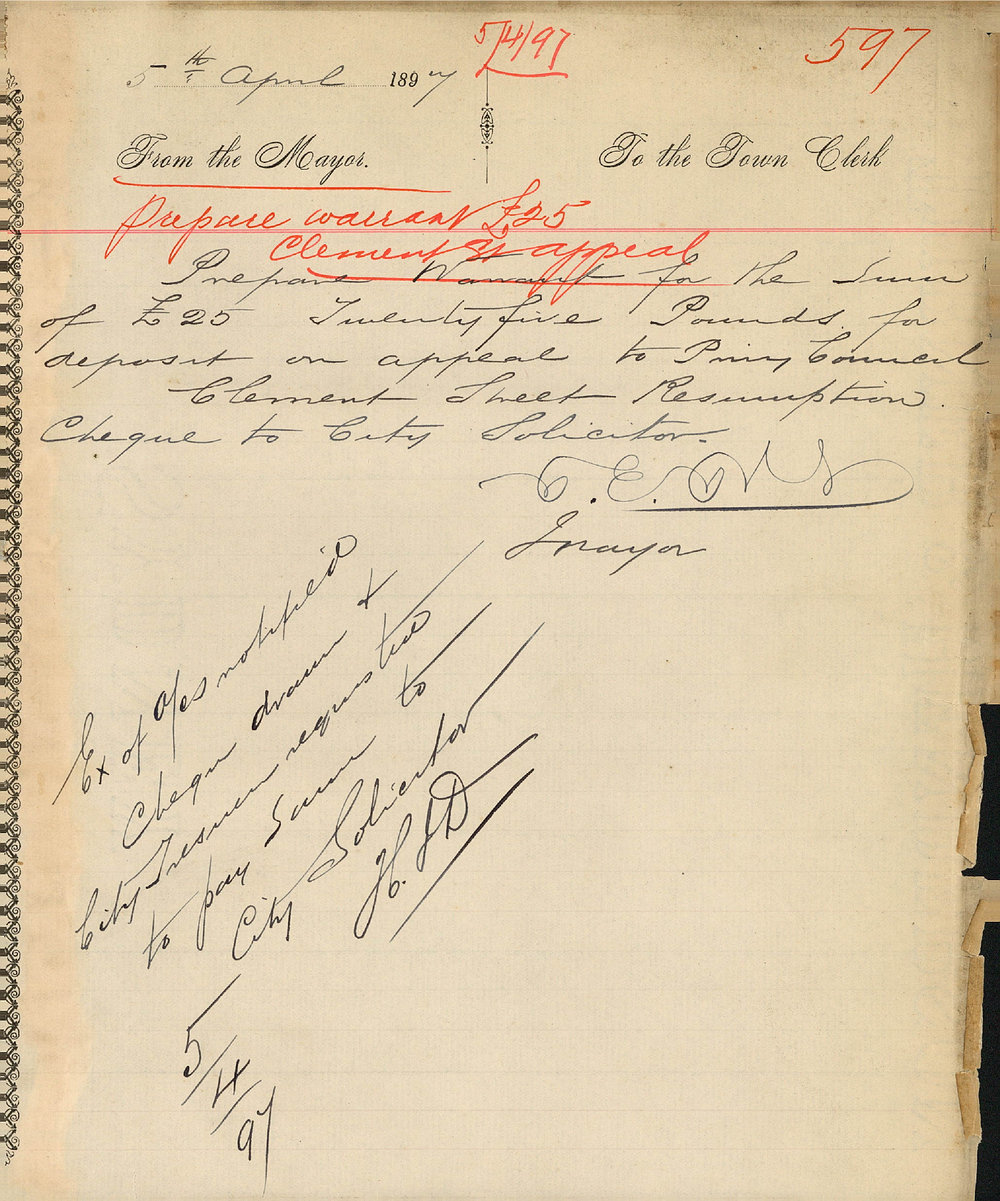 5/4/97
597
5th April 1897
From the Mayor. To the Town Clerk
Prepare warrant £25
Clement St appeal
Prepare Warrant for the Sum
of £25 Twenty five Pounds for
deposit on appeal to Privy Council
Clement Street Resumption.
Cheque to City Solicitor.
Mayor
Ex of a/cs notified
Cheque drawn &
City Treasurer requested
to pay same to
City Solicitor
H.
5/4/97